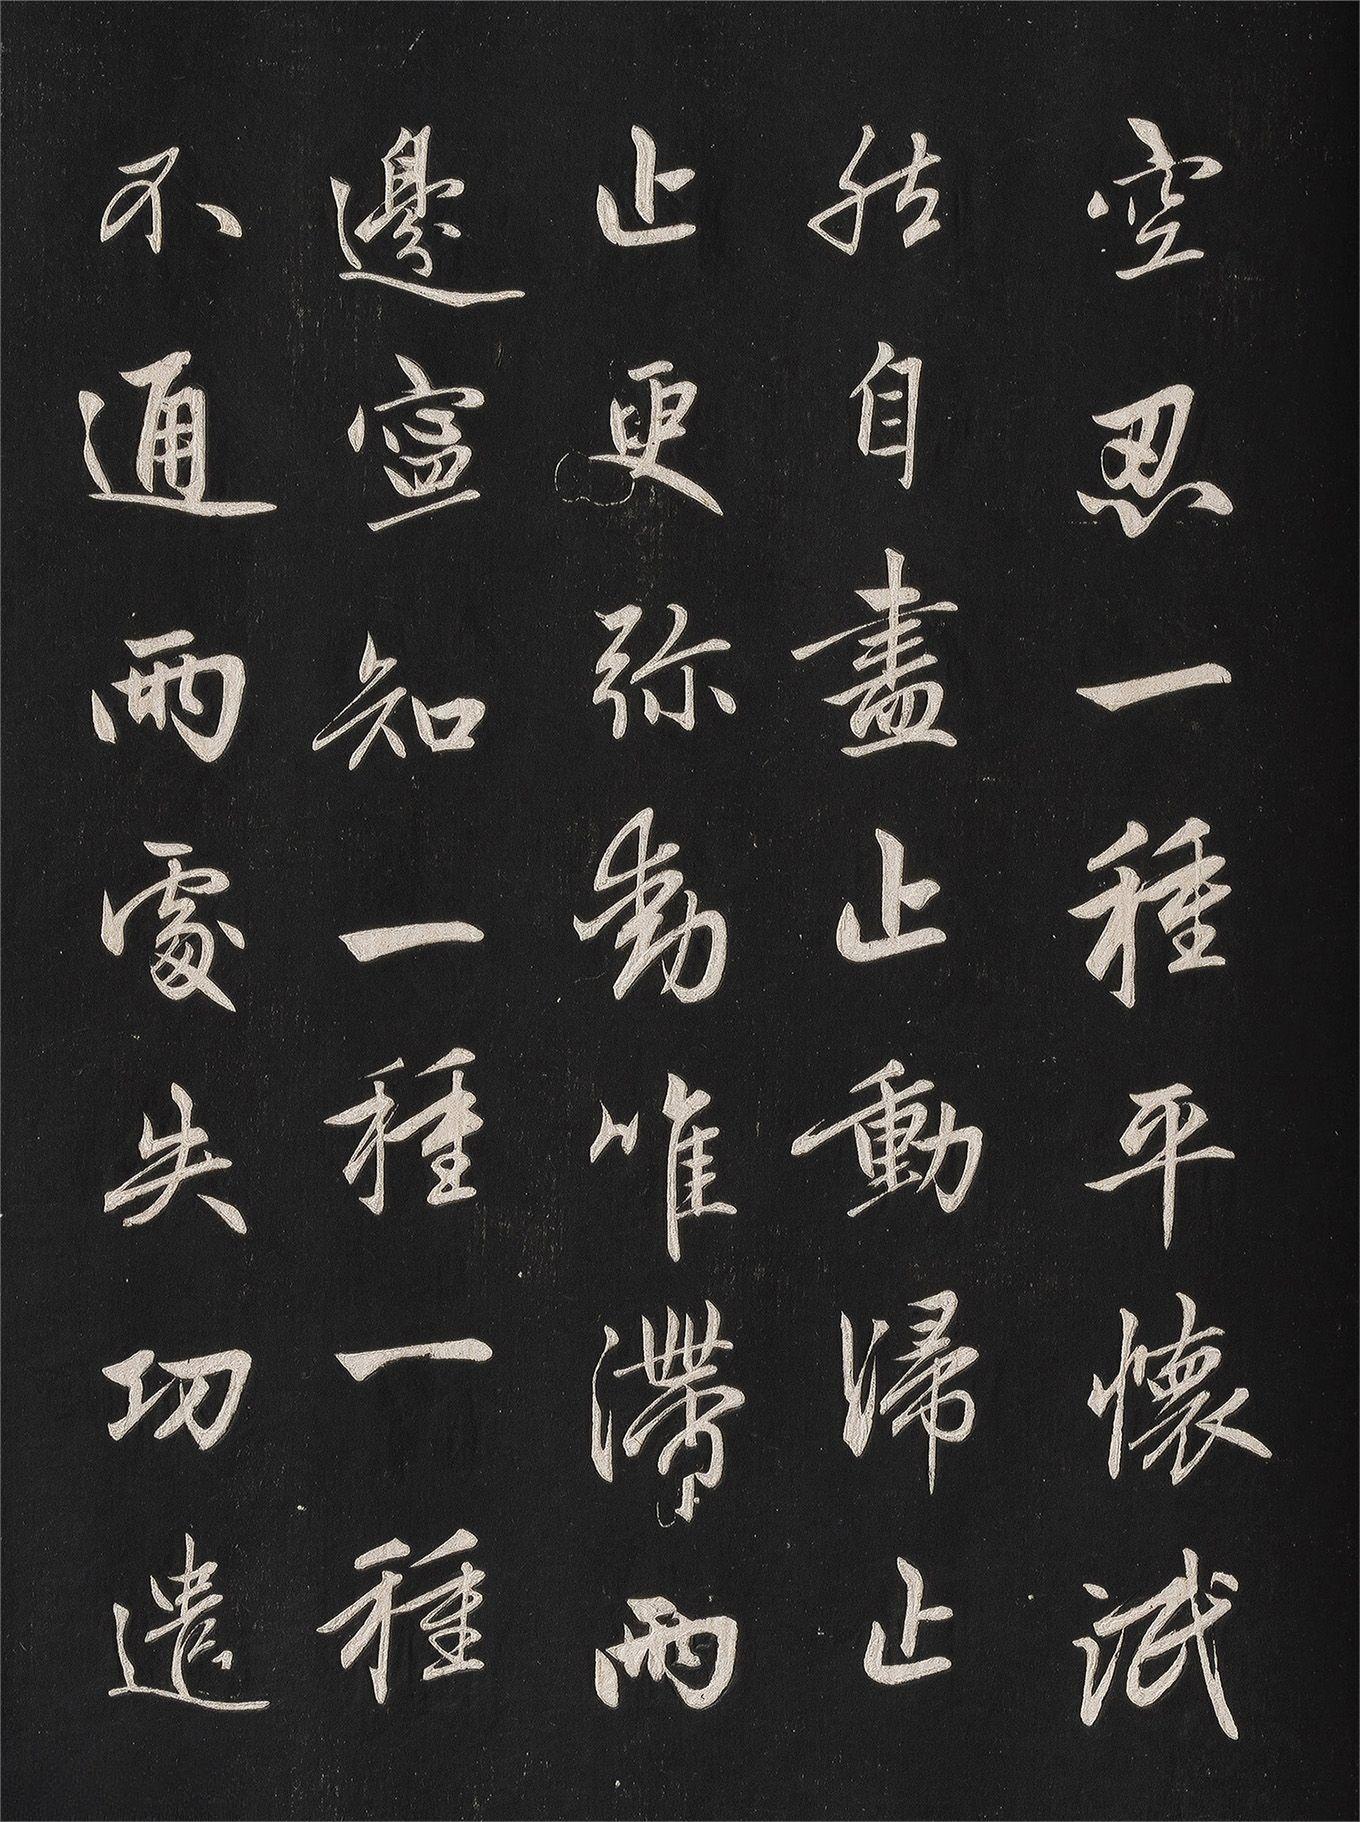 空忍一種平懷泯
然自盡止動歸止
止更弥動唯滯兩
邊寧知一種一種
不通兩處失功遣